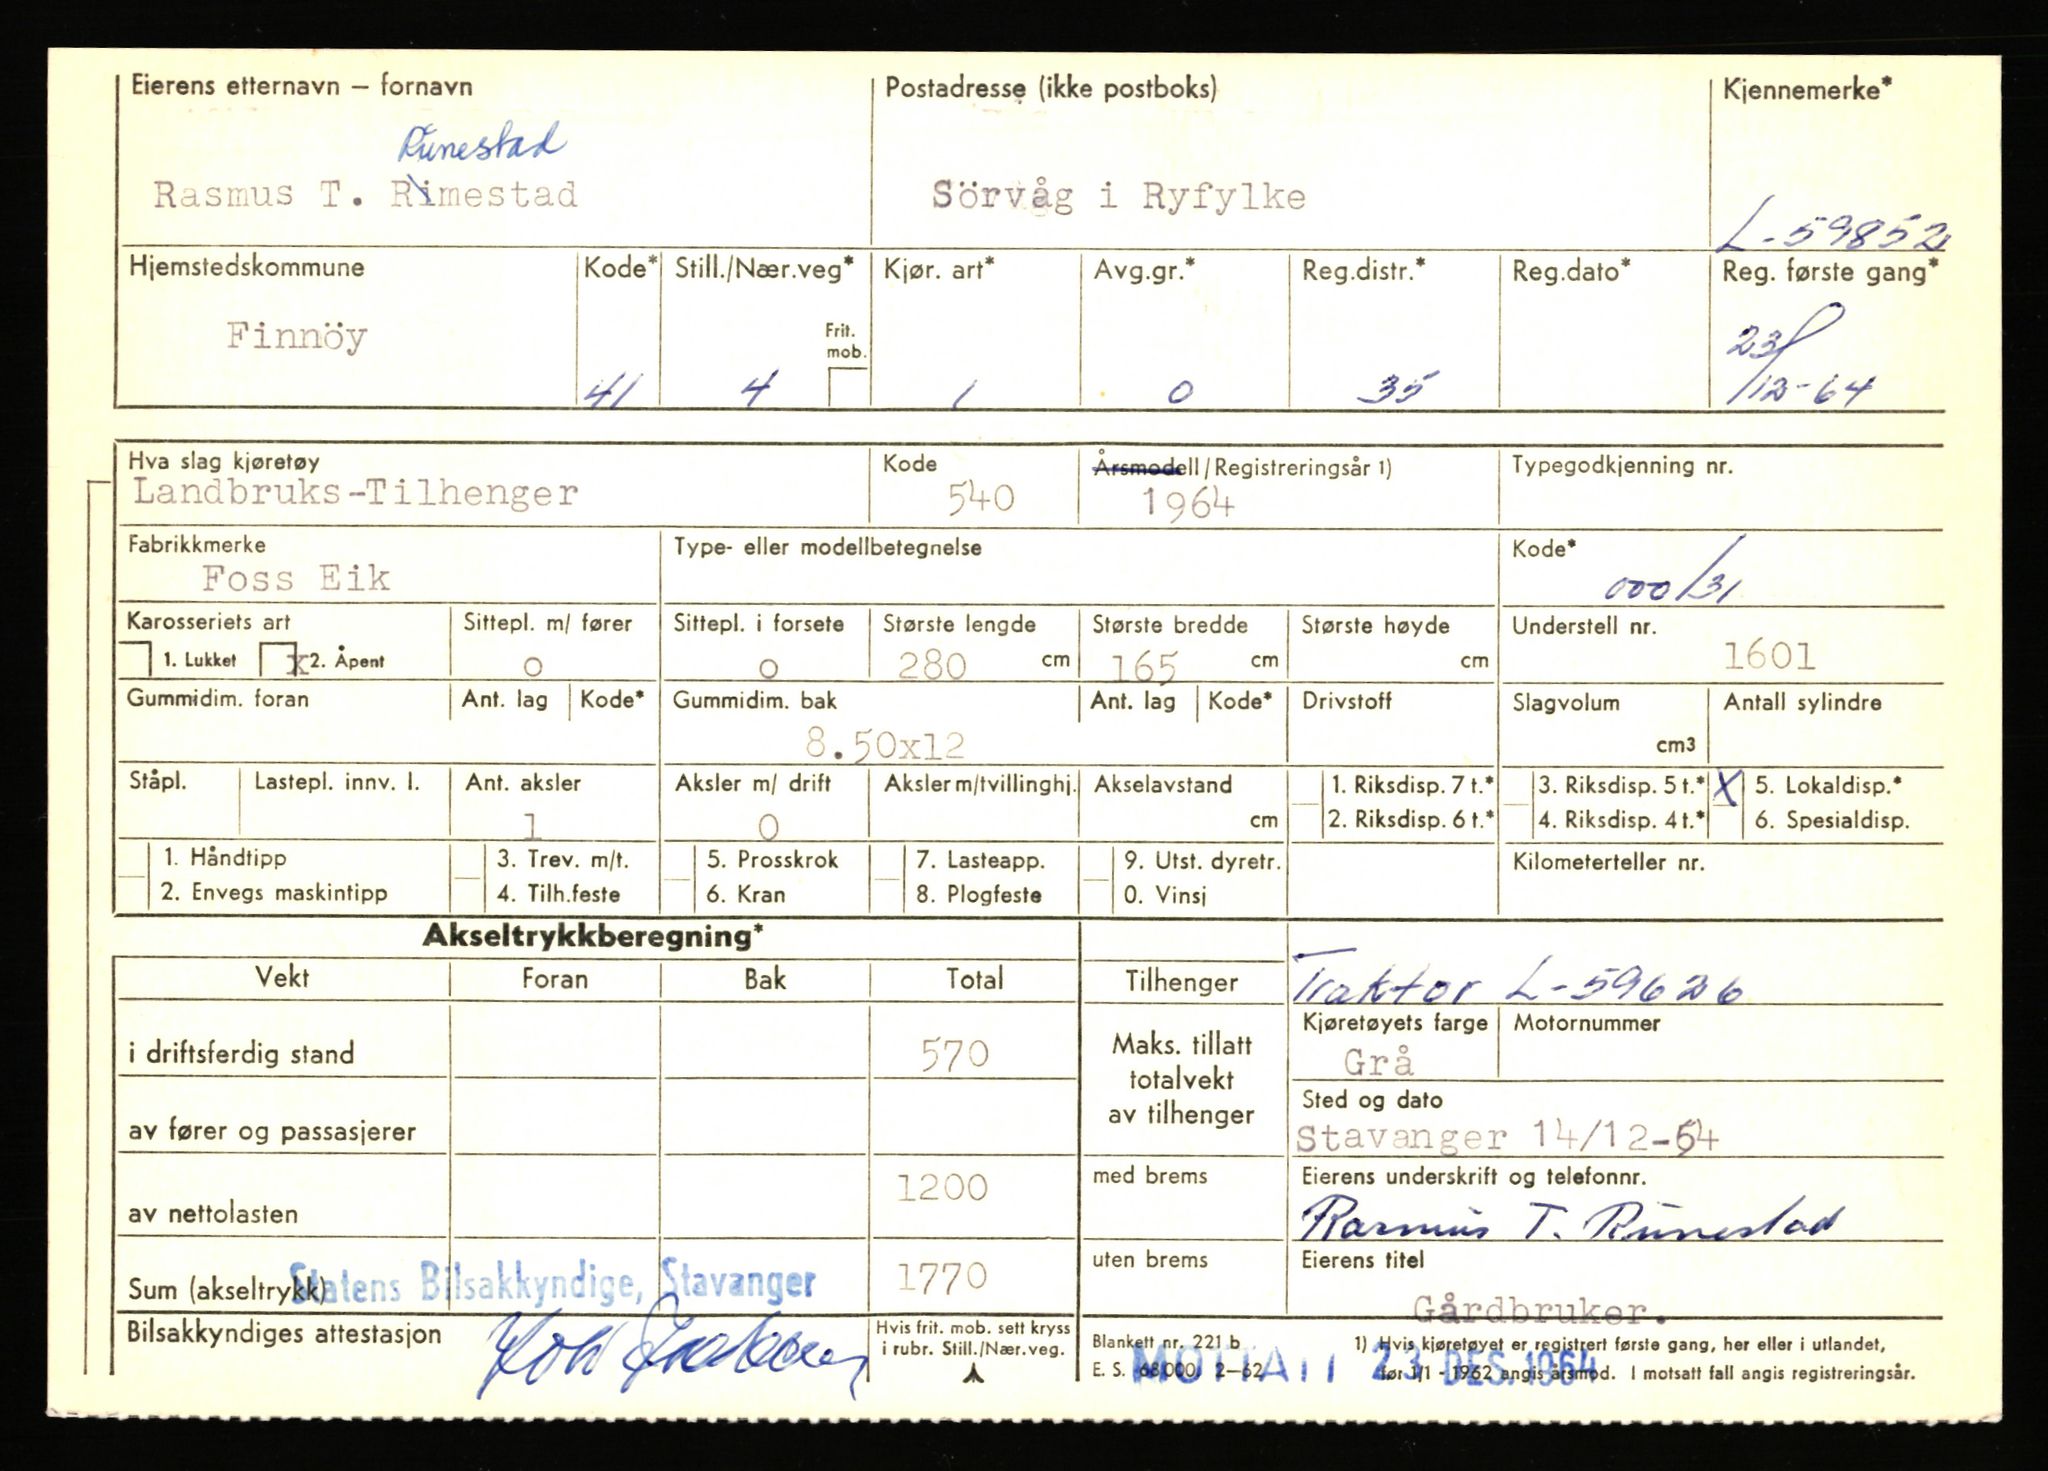 Eierens etternavn – fornavn Postadresse (ikke postboks) Kjennemerke*
Runestad
Rasmus T. Rimestad Sörvåg i Ryfylke
L-59852
Hjemstedskommune Kode* Still./Nær.veg* Kjør. art* Avg.gr.* Reg.distr.* Reg.dato* Reg. første gang*
Finnöy Frit. mob. 23/
41 4 1 0 35 12-64
Hva slag kjøretøy Kode Årsmodell/Registreringsår 1) Typegodkjenning nr.
Landbruks-Tilhenger 540 1964
Fabrikkmerke Type- eller modellbetegnelse Kode*
Foss Eik 000/31
Karosseriets art Sittepl. m/ fører Sittepl. i forsete Største lengde Største bredde Største høyde Understell nr.
1. Lukket x 2. Åpent 0 0 280 cm 165 cm cm 1601
Gummidim. foran Ant. lag Kode* Gummidim. bak Ant. lag Kode* Drivstoff Slagvolum Antall sylindre
8.50x12 cm3
Ståpl. Lastepl. innv. l. Ant. aksler Aksler m/ drift Aksler m/tvillinghj. Akselavstand 1. Riksdisp. 7 t.* 3. Riksdisp. 5 t.* X 5. Lokaldisp.*
1 0 cm 2. Riksdisp. 6 t.* 4. Riksdisp. 4 t.* 6. Spesialdisp.
1. Håndtipp 3. Trev. m/t. 5. Prosskrok 7. Lasteapp. 9. Utst. dyretr. Kilometerteller nr.
2. Envegs maskintipp 4. Tilh.feste 6. Kran 8. Plogfeste 0. Vinsj
Akseltrykkberegning*
Vekt Foran Bak Total Tilhenger Traktor L-59626
Kjøretøyets farge Motornummer
i driftsferdig stand 570 Maks. tillatt Grå
totalvekt
av tilhenger Sted og dato
av fører og passasjerer Stavanger 14/12-64
med brems Eierens underskrift og telefonnr.
av nettolasten 1200 Rasmus T. Runestad
uten brems Eierens titel
Sum (akseltrykk) Statens Bilsakkyndige, Stavanger 1770
Gårdbruker.
Bilsakkyndiges attestasjon Hvis frit. mob. sett kryss Blankett nr. 221 b 1) Hvis kjøretøyet er registrert første gang, her eller i utlandet,
i rubr. Still./Nær.veg. E. S. 68.000. 2–62 før 1/1 - 1962 angis årsmod. I motsatt fall angis registreringsår.
MOTTATT 23 DES. 1964